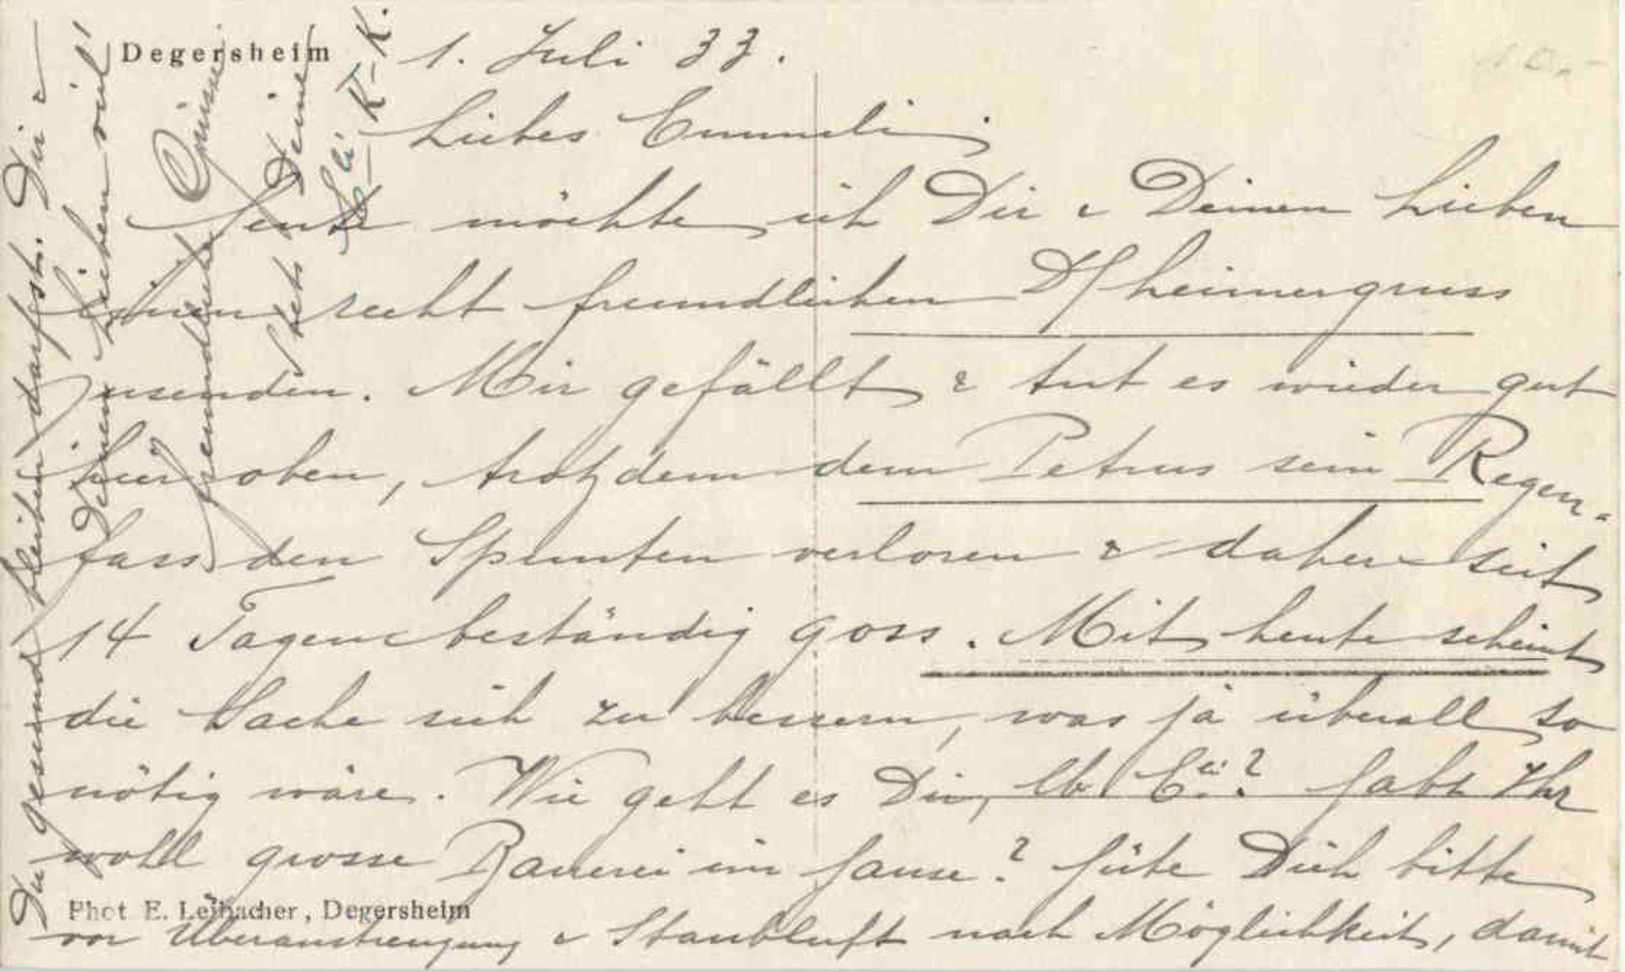 Degersheim 1. Juli 33.
Liebes Emmeli
Heute möchte ich Dir & Deinen Lieben
einen recht freundlichen D'heimergruss
zusenden. Mir gefällt & tut es wieder gut
hier oben, trotzdem dem Petrus sein Regen-
fass den Spunten verloren & daher seit
14 Tagen beständig goss. Mit heute scheint
die Sache sich zu bessern, was ja überall so
nötig wäre. Wie geht es Dir, lb. E'li? Habt Ihr
wohl grosse Bauerei im Hause? Hüte Dich bitte
Phot E. Leibacher, Degersheim
vor Überanstrengung & Staubluft nach Möglichkeit, damit
Du gesund bleiben darfst. Dir &
Deinen Lieben viel
freundliche Grüsse
Stets Deine
K-K.